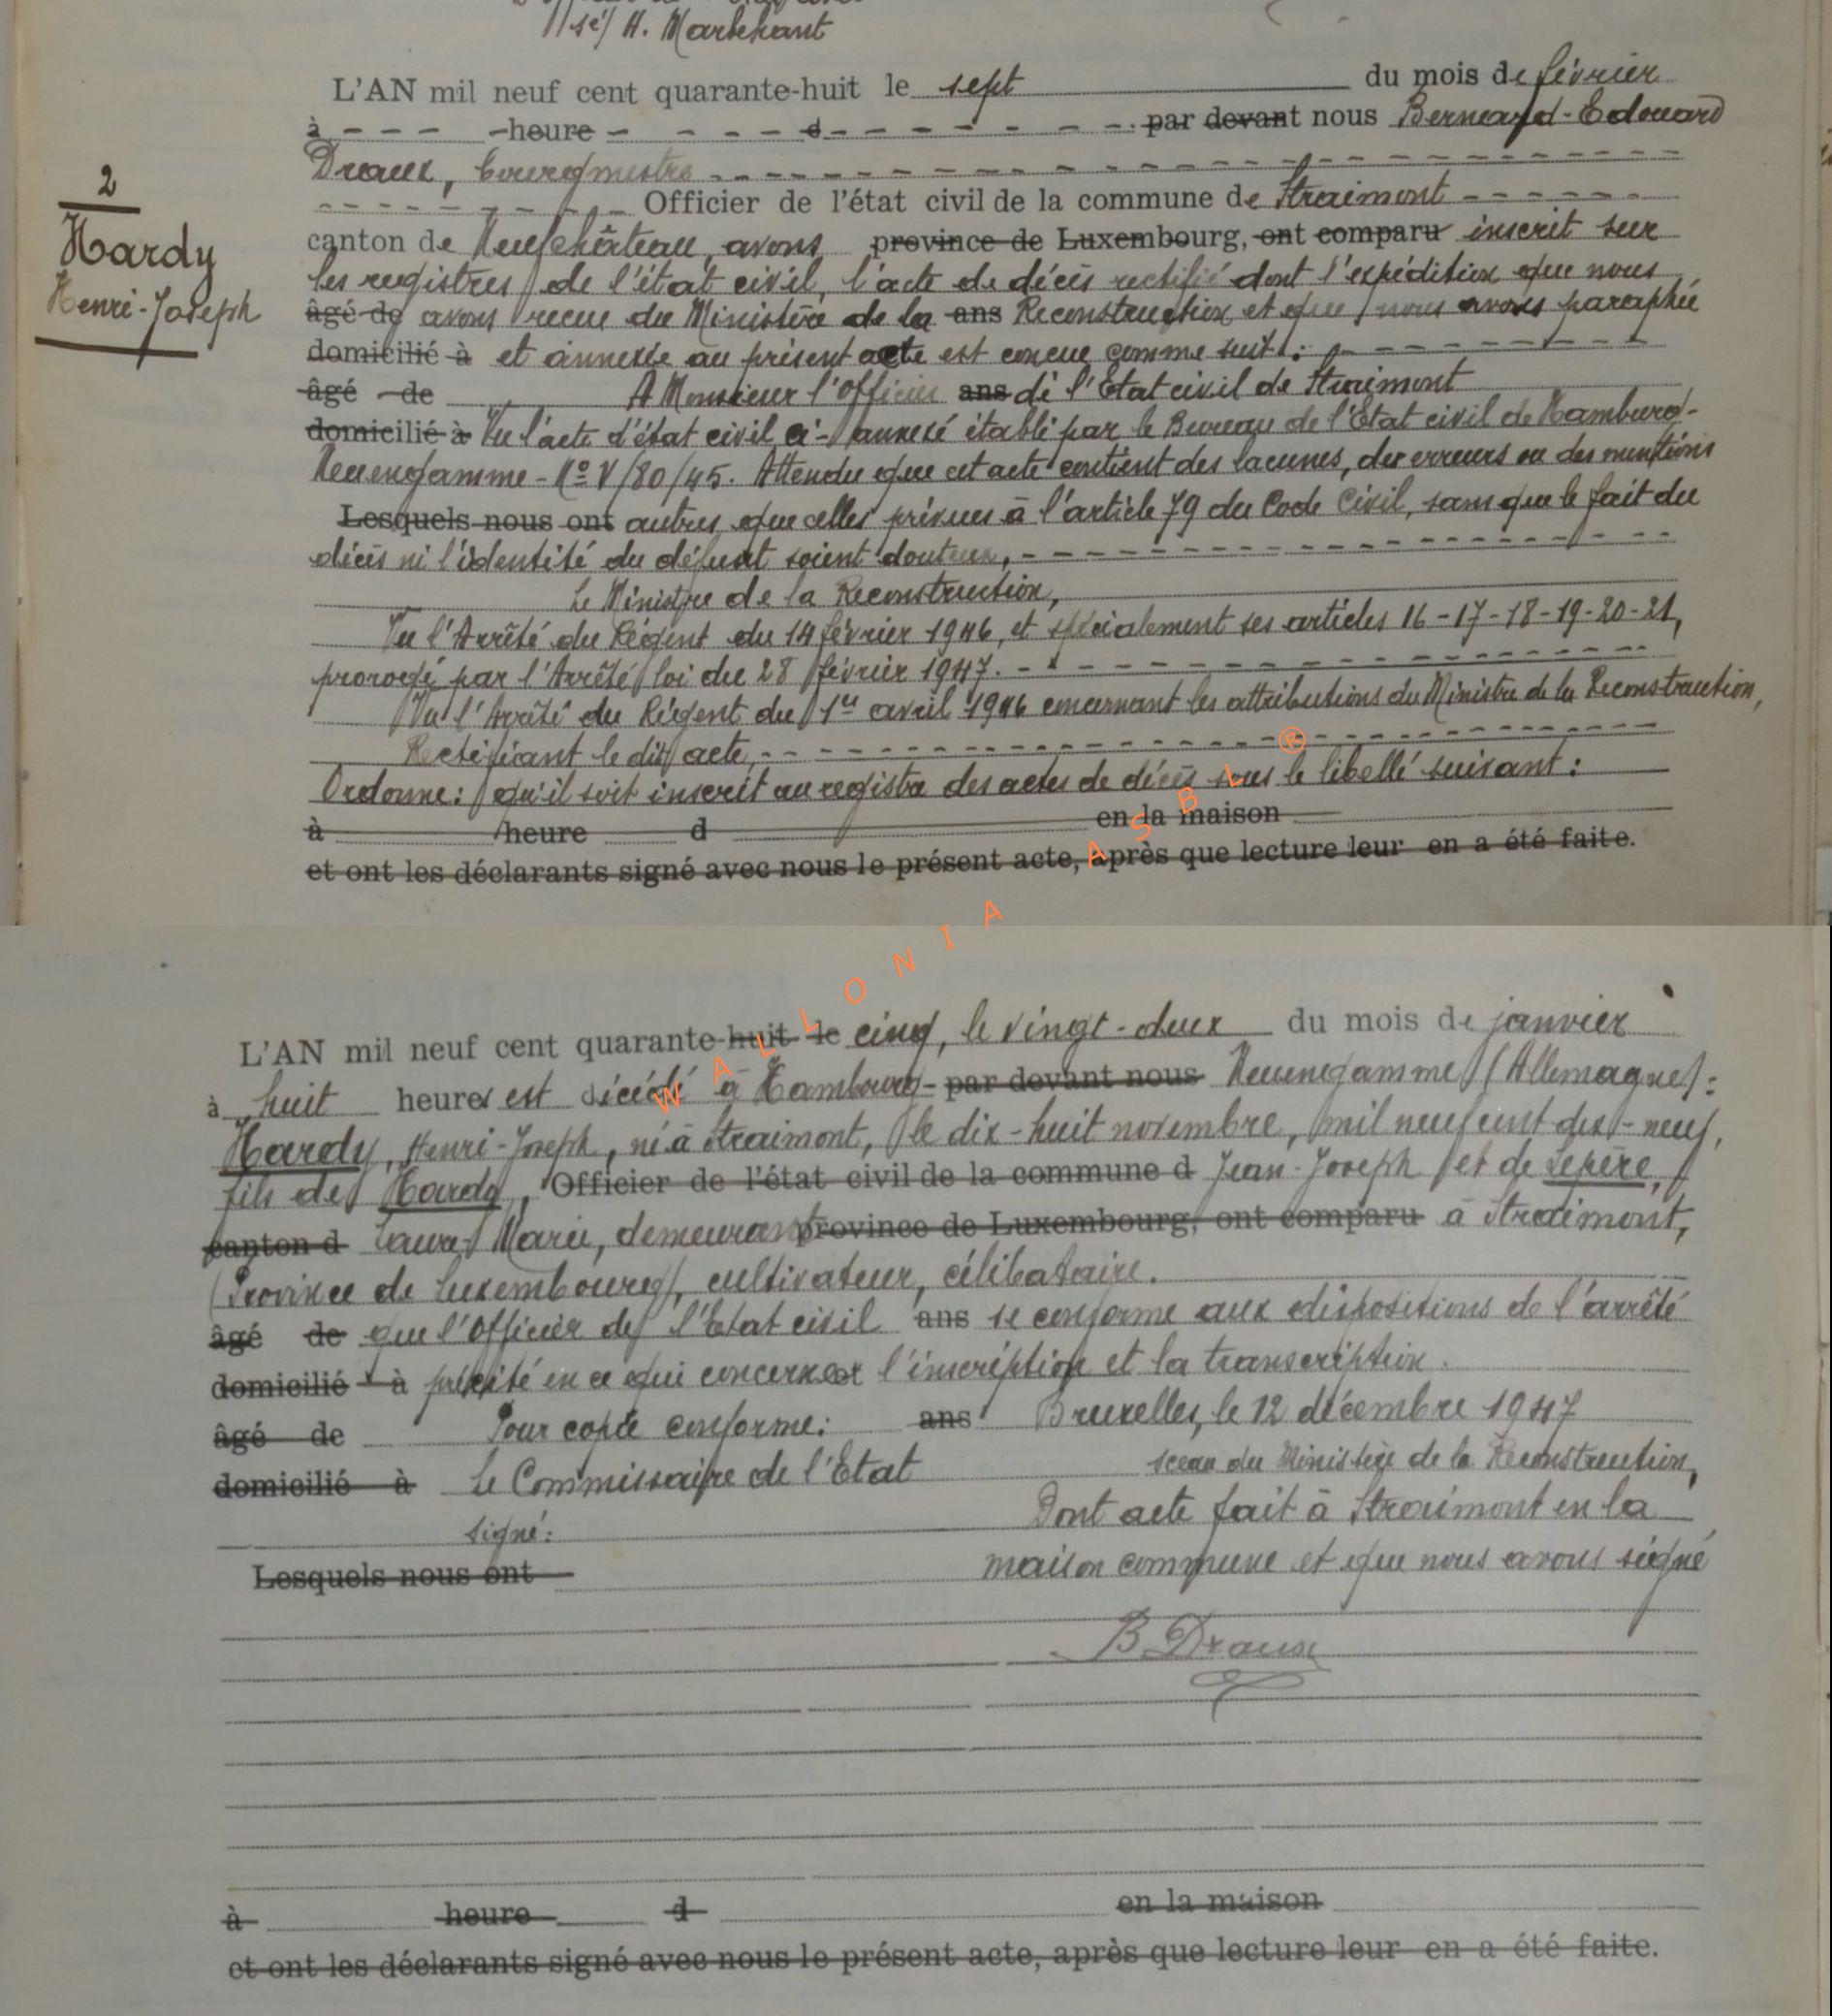 (sé) H. Marchant
L'AN mil neuf cent quarante-huit le sept du mois de février
à heure d par devant nous Bernard-Edouard
Draux, bourgmestre
Officier de l'état civil de la commune de Straimont
canton de Neufchâteau, avons province de Luxembourg, ont comparu inscrit sur
2
Hardy
Henri-Joseph
les registres de l'état civil, l'acte de décès rectifié dont l'expédition que nous
âgé de avons reçue du Ministère de la ans Reconstruction et que nous avons paraphée
domicilié à et annexée au présent acte est concue comme suit :
âgé de A Monsieur l'Officier ans de l'Etat civil de Straimont
domicilié à Vu l'acte d'état civil ci-annexé établi par le Bureau de l'Etat civil de Hambourg-
Neuengamme - No V/80/45. Attendu que cet acte contient des lacunes, des erreurs ou des mentions
Lesquels nous ont autres que celles prévues à l'article 79 du Code Civil, sans que le fait du
décès ni l'identité du défunt soient douteux,
Le Ministre de la Reconstruction,
Vu l'Arrêté du Régent du 14 février 1946, et spécialement ses articles 16-17-18-19-20-21,
prorogé par l'Arrêté loi du 28 février 1947.
Vu l'Arrêté du Régent du 1er avril 1946 concernant les attributions du Ministre de la Reconstruction,
Rectifiant le dit acte,
Ordonne: qu'il soit inscrit au registre des actes de décès sous le libellé suivant :
à heure d en la maison
et ont les déclarants signé avec nous le présent acte, après que lecture leur en a été faite.
WALLONIA ASBL ®
L'AN mil neuf cent quarante-huit le cinq, le vingt-deux du mois de janvier
à huit heures est décédé à Hambourg- par devant nous Neuengamme (Allemagne) :
Hardy, Henri-Joseph, né à Straimont, le dix-huit novembre, mil neuf cent dix-neuf,
fils de Hardy, Officier de l'état civil de la commune d Jean-Joseph et de Lepère,
canton d Laura Marie, demeurant province de Luxembourg, ont comparu à Straimont,
(Province de Luxembourg), cultivateur, célibataire.
âgé de que l'Officier de l'Etat civil ans se conforme aux dispositions de l'arrêté
domicilié à précité en ce qui concerne l'inscription et la transcription.
âgé de Pour copie conforme: ans Bruxelles, le 12 décembre 1947
domicilié à Le Commissaire de l'Etat sceau du Ministère de la Reconstruction,
signé: Dont acte fait à Straimont en la
Lesquels nous ont maison commune et que nous avons signé
B Draux
à heure d en la maison
et ont les déclarants signé avec nous le présent acte, après que lecture leur en a été faite.